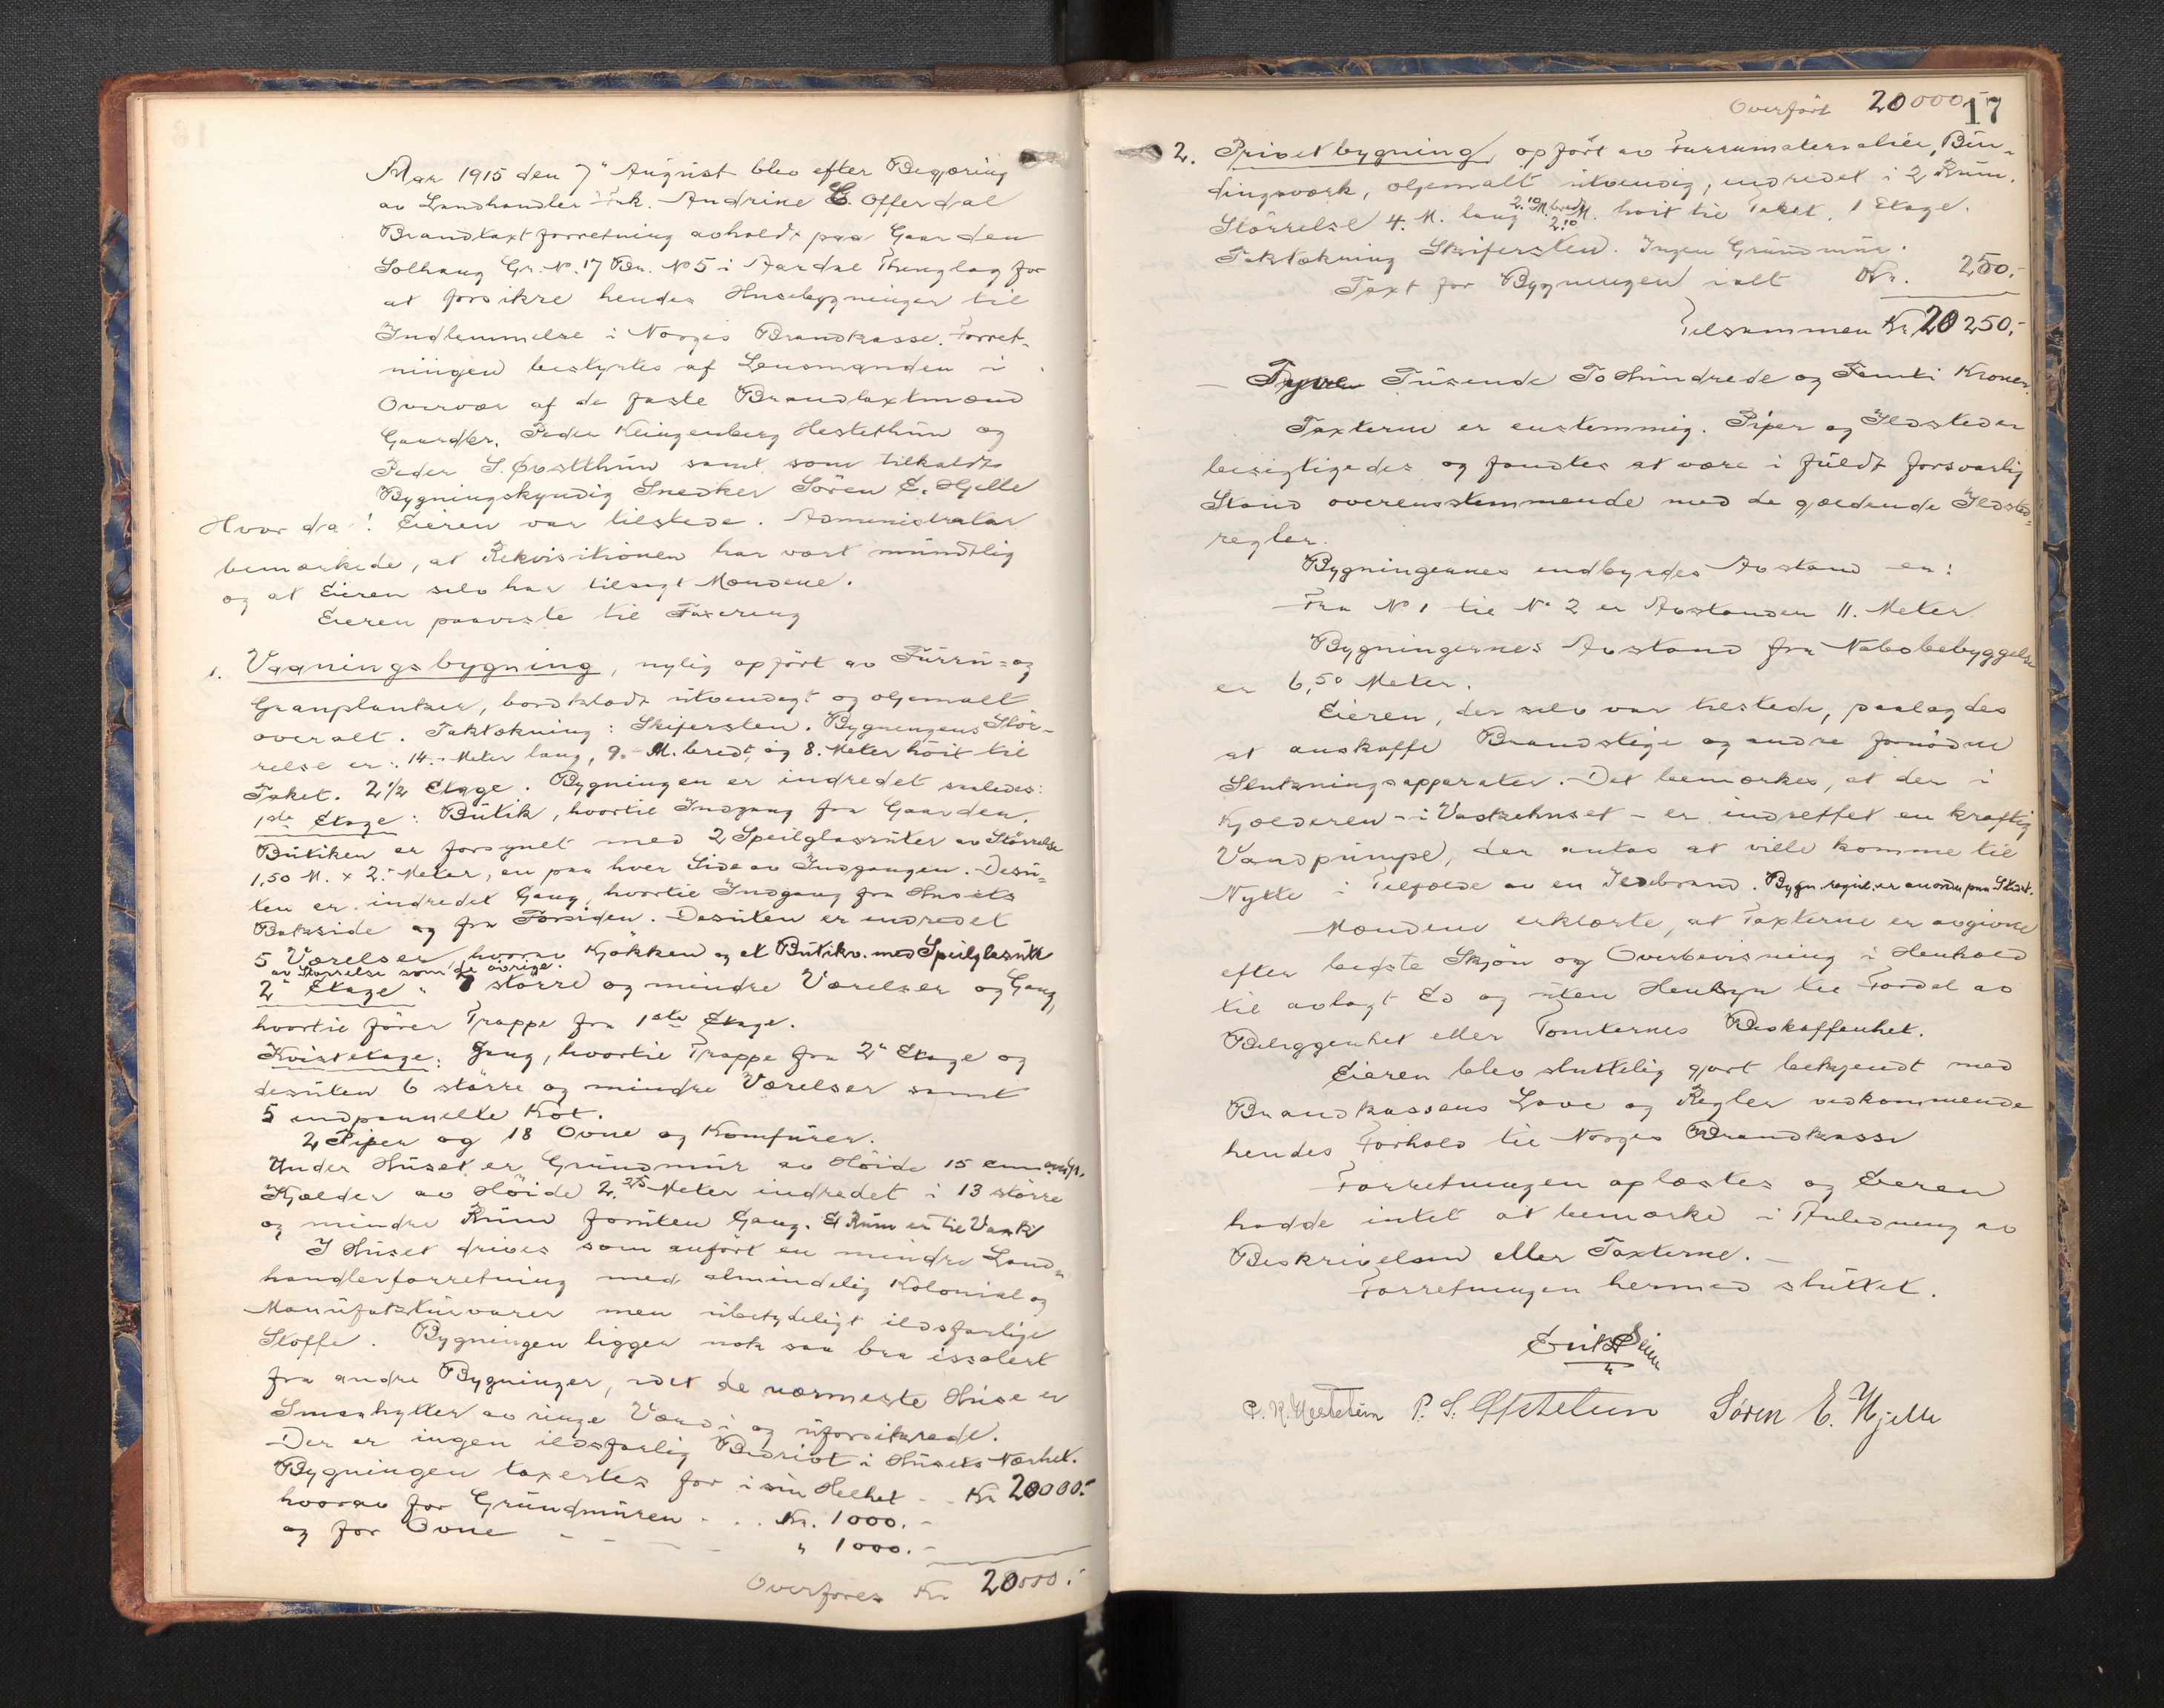 Aar 1915 den 7" August blev efter Begjæring
av Landhandler Frk. Andrine E. Offerdal
Brandtaxtforretning avholdt paa Gaarden
Solhaug Gr. No. 17 Br. No 5 i Aardal Thinglag for
at forsikre hendes Husebygninger til
Indlemmelse i Norges Brandkasse. Forret-
ningen bestyrtes af Lensmanden i
Overvær af de faste Brandtaxtmænd
Gaardbr. Peder Klingenberg Hestethun og
Peder S. Øvstthun samt som tilkaldt
Bygningskyndig Snedker Sören E. Hjelle
Hvorda! Eieren var tilstede. Administrator
bemærkede, at Rekvisitionen har vært mundtlig
og at Eieren selv har tilsagt Mændene.
Eieren paaviste til Taxering
1. Vaaningsbygning, nylig opfört av Furru- og
Granplanker, bordklædt utvendigt og oljemalt
overalt. Taktækning: Skifersten. Bygningens Stör-
relse er: 14.- Meter lang, 9.- M. bredt, og 8. Meter höit til
Taket. 2 1/2 Etage. Bygningen er indredet saaledes:
1ste Etage: Butik, hvortil Indgang fra Gaarden.
Butiken er forsynet med 2 Speilglasruter av Störrelse
1,50 M. x 2.- Meter, en paa hver Side av Indgangen. Desu-
ten er indredet Gang, hvortil Indgang fra Husets
Bakside og fra Forsiden. Desuten er indredet
5 Værelser, hvorav Kjökken og et Butikv. med Speilglasrute
av Störrelse som de övrige.
2" Etage: 7 större og mindre Værelser og Gang,
hvortil förer Trappe fra 1ste Etage.
Kvistetage: Gang, hvortil Trappe fra 2" Etage og
desuten 6 större og mindre Værelser samt
5 indpannelte Kot.
2 Piper og 18 Ovne og Komfurer.
Under Huset er Grundmur av Höide 15 cm
Kjælder av Höide 2.25 Meter indredet i 13 större
og mindre Rum foruten Gang. Et Rum er til Vask
I Huset drives som anfört en mindre Land-
handlerforretning med almindelig Kolonial og
Manufakturvarer men ubetydeligt ildsfarlige
Stoffe. Bygningen ligger nok saa bra issolert
fra andre Bygninger, idet de nærmeste Huse er
Smaahytter av ringe Værdi og uforsikrede.
Der er ingen ildsfarlig Bedrivt i Husets Nærhet.
Bygningen taxertes for i sin Helhet - - Kr 20000.-
hvorav for Grundmuren - . . Kr. 1000.-
og for Ovne - - - - - " 1000.-
Overföres Kr 20000.-
17
Overfört 20000.-
2. Privetbygning, opfört av Furrumaterialier, Bin-
dingsværk, oljemalt utvendig, indredet i 2 Rum.
Störrelse 4. M. lang 2.10 M. bred 2.10 M. höit til Taket. 1 Etage.
Taktækning Skifersten. Ingen Grundmur.
Taxt for Bygningen i alt Kr. 250.-
Tilsammen Kr 20 250.-
- Tyve Tusende To Hundrede og Femti Kroner.
Taxterne er enstemmig. Piper og Ildsteder
besigtigedes og fandtes at være i fuldt forsvarlig
Stand overensstemmende med de gjældende Ildsted-
regler.
Bygningernes indbyrdes Avstand er:
Fra No 1 til No 2 er Avstanden 11. Meter
Bygningernes Avstand fra Nabobebyggelse
er 6,50 Meter.
Eieren, der selv var tilstede, paalagdes
at anskaffe Brandstige og andre fornödne
Slukningsapparater. Det bemærkes, at der i
Kjælderen - i Vaskehuset - er indrettet en kraftig
Vandpumpe, der antas at ville komme til
Nytte i Tilfælde av en Ildebrand. Bygn.
Mændene erklærte, at Taxterne er avgivne
efter bedste Skjön og Overbevisning i Henhold
til avlagt Ed og uten Hensyn til Fordel av
Beliggenhet eller Tomternes Beskaffenhet.
Eieren blev sluttelig gjort bekjendt med
Brandkassens Love og Regler vedkommende
hendes Forhold til Norges Brandkasse
Forretningen oplæstes og Eieren
hadde intet at bemærke i Anledning av
Beskrivelsen eller Taxterne. -
Forretningen hermed sluttet.
P. K. Hestetun P. S. Östetun Sören E. Hjelle